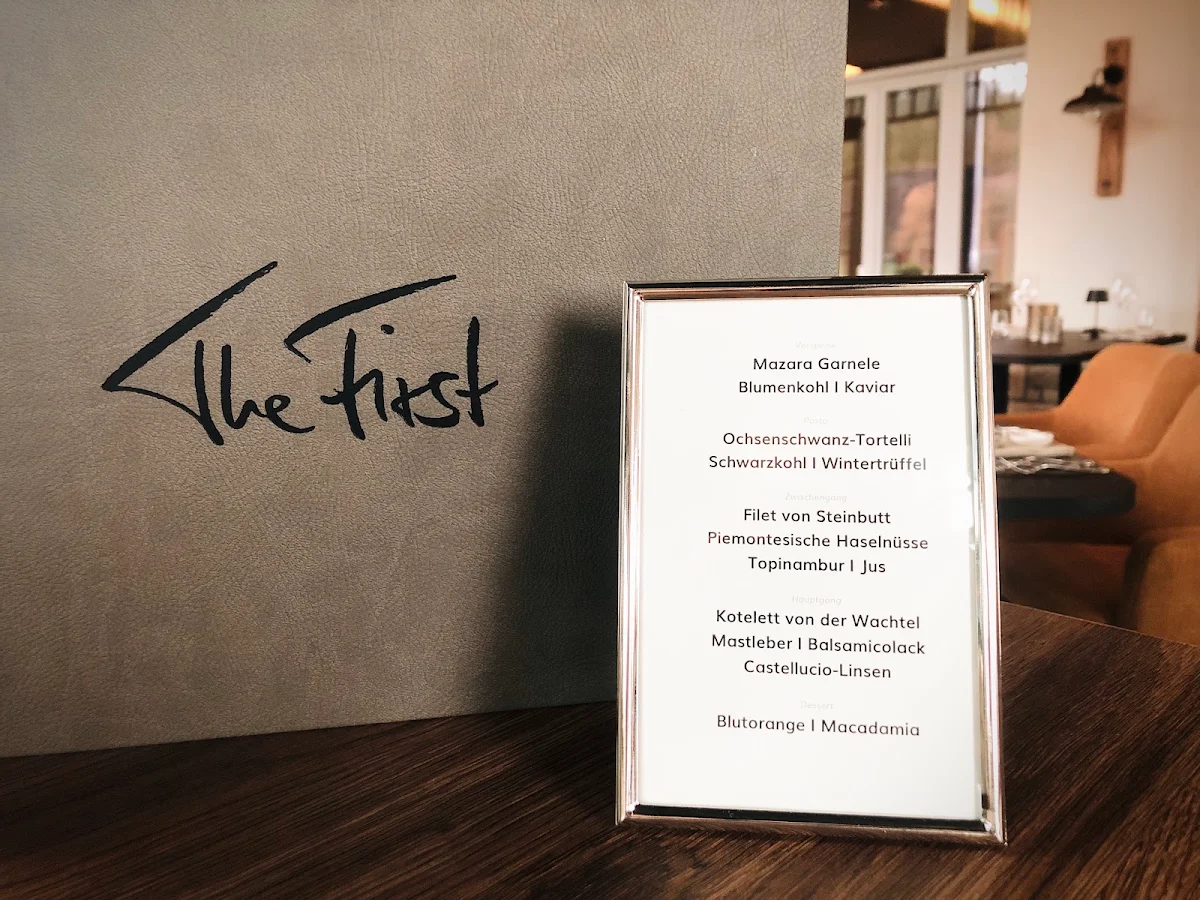 The First
Vorspeise
Mazara Garnele
Blumenkohl I Kaviar
Pasta
Ochsenschwanz-Tortelli
Schwarzkohl I Wintertrüffel
Zwischengang
Filet von Steinbutt
Piemontesische Haselnüsse
Topinambur I Jus
Hauptgang
Kotelett von der Wachtel
Mastleber I Balsamicolack
Castellucio-Linsen
Dessert
Blutorange I Macadamia